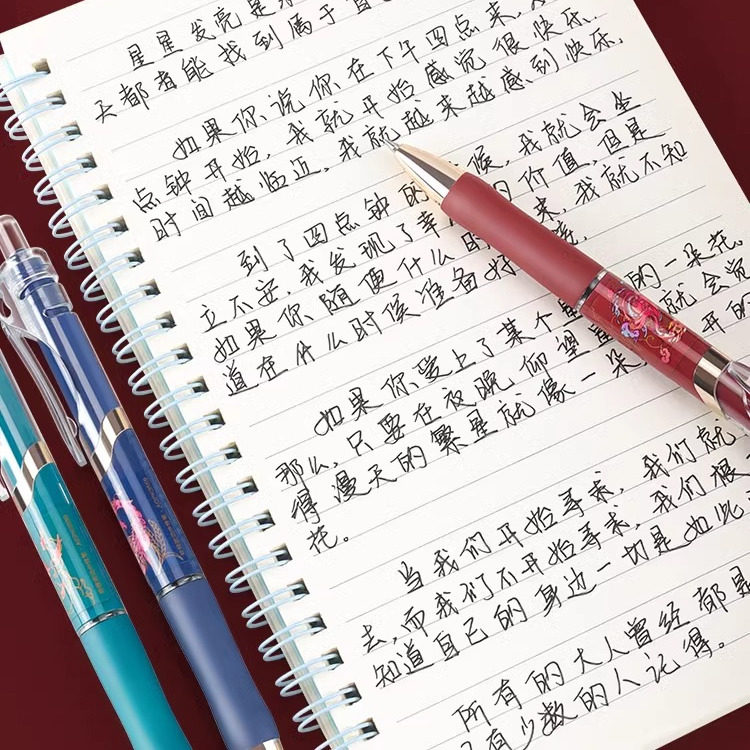 星星发亮是
天都者能找到属于自
如果你说你在下午四点来,
点钟开始,我就开始感觉很快乐.
时间越临近,我就越来越感到快乐.
到了四点钟的 候,我就会坐
立不安,我发现了幸 的价值,但是
如果你随便什么时 来,我就不知
道在什么时候准备好
如果你爱上了某个 的一朵花。
那么,只要在夜晚仰望 就会觉
得漫天的繁星就像一朵 开的
花。
当我们开始寻求,我们就
去,而我们不开始寻求,我们根
知道自己的身边一切是如此
所有的大人曾经都是
只有少数的人记得。